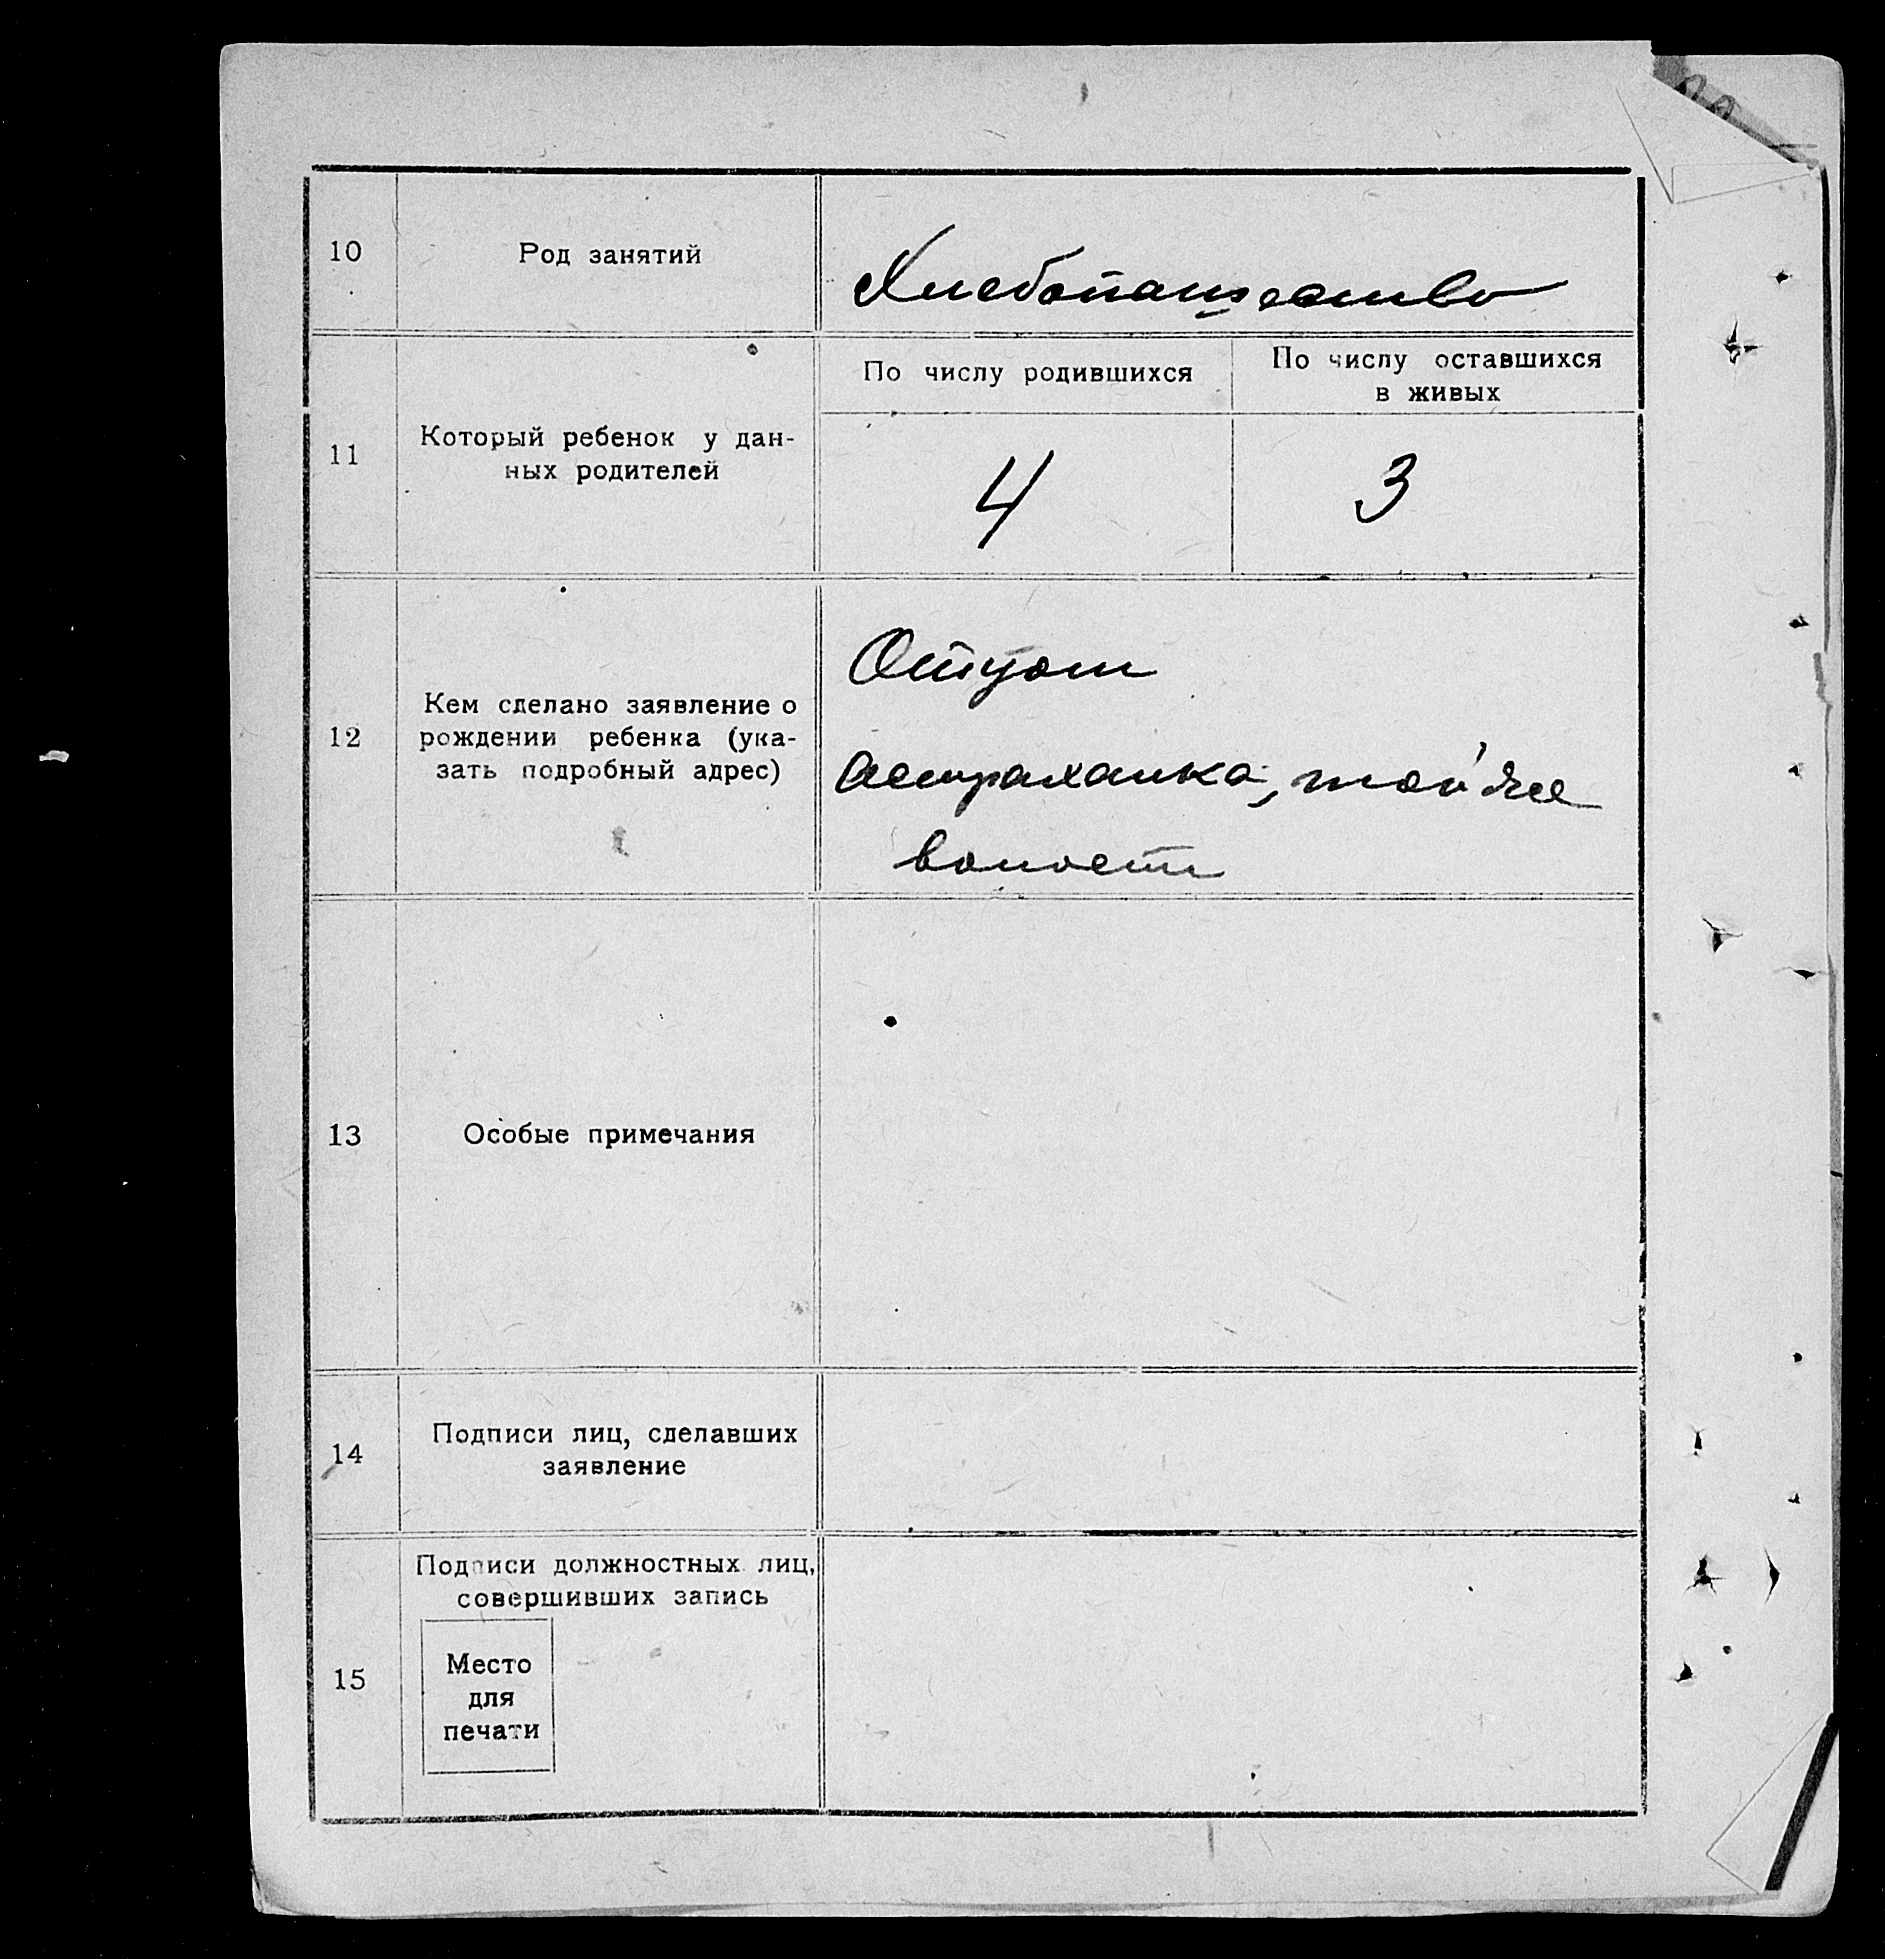 10
Род занятий
Хлебопашество
11
Который ребенок у дан-
ных родителей
По числу родившихся
По числу оставшихся
в живых
4
3
12
Кем сделано заявление о
рождении ребенка (ука-
зать подробный адрес)
Отцом
Астраханка, той же
волости
13
Особые примечания
14
Подписи лиц, сделавших
заявление
15
Подписи должностных лиц,
совершивших запись
Место
для
печати